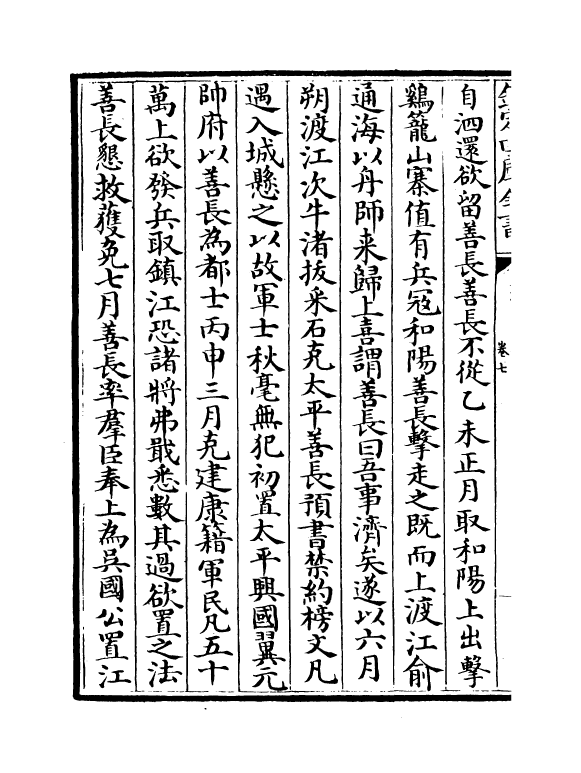 自泗還欲留善長善長不從乙未正月取和陽上出擊
鷄籠山寨值有兵冦和陽善長擊走之既而上渡江俞
通海以舟師来歸上喜謂善長曰吾事濟矣遂以六月
朔渡江次牛渚抜采石克太平善長預書禁約榜文凡
遇入城懸之以故軍士秋毫無犯初置太平興國翼元
帥府以善長為都士丙申三月克建康籍軍民凡五十
萬上欲發兵取鎮江恐諸將弗戢悉數其過欲置之法
善長懇救獲免七月善長率羣臣奉上為吳國公置江
卷七